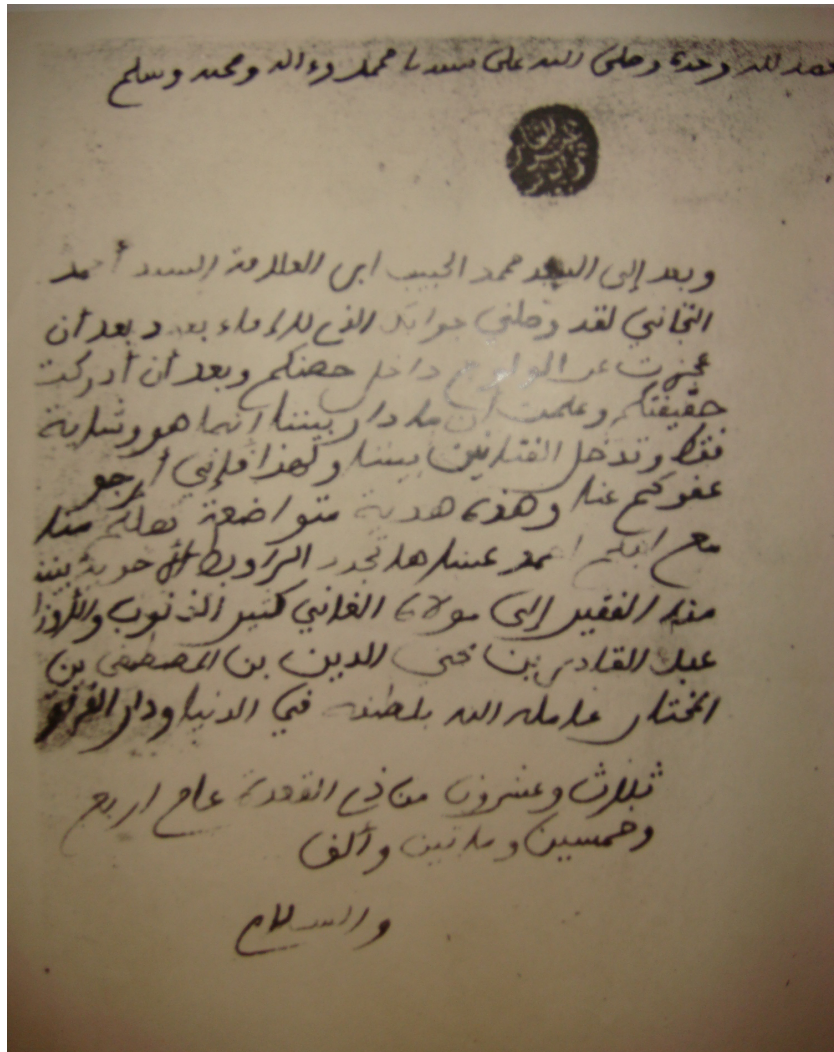 الحمد لله وحده وصلى الله على سيدنا محمد وءاله وصحبه وسلم
وبعد إلى السيد محمد الحبيب ابن العلامة السيد أحمد
التجاني لقد وصلني جوابكم الذي بعد أن
عجزت عن الولوج داخل حصنكم وبعد أن أدركت
حقيقتكم وعلمت أن ما دار بيننا انما هو وشاية
فقط وتدخل الفتانين بيننا ولهذا فإنني أرجو
عفوكم عنا وهذه هدية متواضعة تصلكم منا
مع ابنكم احمد عساها تجدد الروابط الأخوية بيننا
من الفقير إلى مولاه الغاني كثير الذنوب والأوزار
عبد القادر بن محي الدين بن المصطفى بن
المختار عامله الله بلطفه في الدنيا ودار القرار
ثلاث وعشرون من ذي القعدة عام اربع
وخمسين ومائتين وألف
والسلام